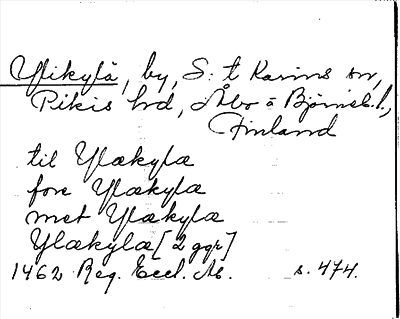 Ylikylä, by, S:t Karins sn,
Pikis hd, Åbo o Björneb. l.,
Finland
til Ylækylæ
fore Ylækylæ
met Ylækylæ
Ylækylæ [2 ggr]
1462 Reg. Eccl. Ab. s. 474.